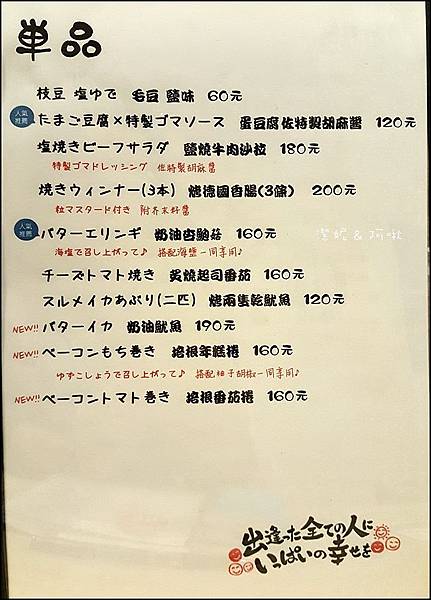 単品
枝豆 塩ゆで 毛豆 鹽味 60元
人氣推薦 たまご豆腐×特製ゴマソース 蛋豆腐佐特製胡麻醬 120元
塩焼きビーフサラダ 鹽燒牛肉沙拉 180元
特製ゴマドレッシング 佐特製胡麻醬
焼きウィンナー(3本) 烤德國香腸(3條) 200元
粒マスタード付き 附芥末籽醬
人氣推薦 バターエリンギ 奶油杏鮑菇 160元
海塩で召し上がって♪ 搭配海鹽一同享用♪
チーズトマト焼き 炙燒起司番茄 160元
スルメイカあぶり(二匹) 烤兩隻乾魷魚 120元
NEW!! バターイカ 奶油魷魚 190元
NEW!! ベーコンもち巻き 培根年糕捲 160元
ゆずこしょうで召し上がって♪ 搭配柚子胡椒一同享用♪
NEW!! ベーコントマト巻き 培根番茄捲 160元
出逢った全ての人に
いっぱいの幸せを